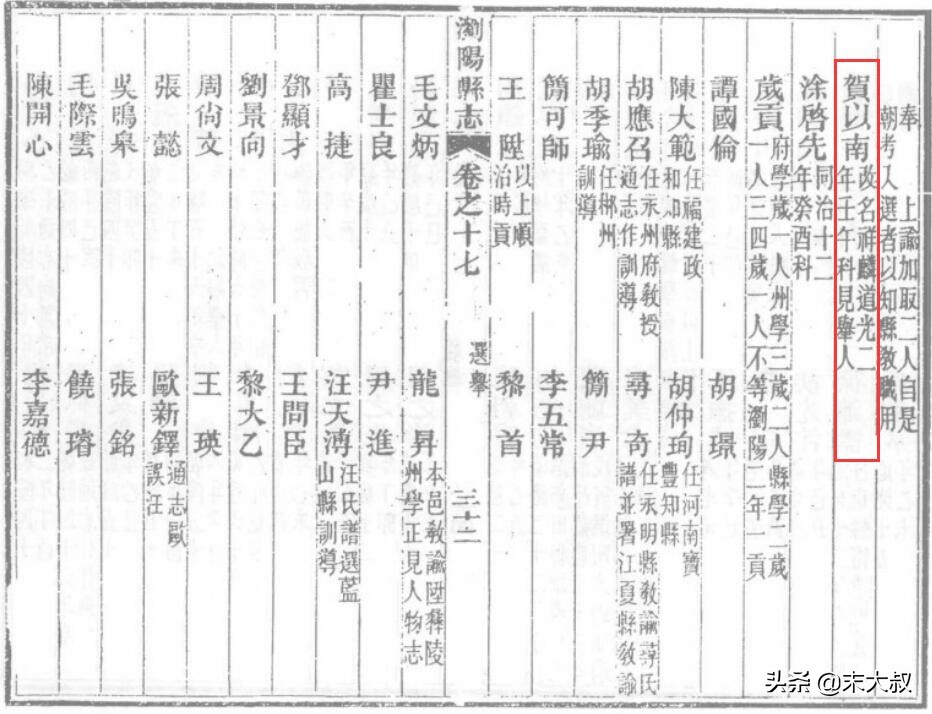 奉　上諭加取二人自是
朝考入選者以知縣教職用
賀以南 改名祥麟道光二
年壬午科見舉人
涂啓先 同治十二
年癸酉科
歲貢 府學歲一人州學三歲二人縣學二歲
一人三四歲一人不等瀏陽二年一貢
譚國倫　胡璟
陳大範 任福建政
和知縣　胡仲珣 任河南寶
豐知縣
胡應召 任永州府教授
通志作訓導　尋奇 任永明縣教諭尋氏
譜並署江夏縣教諭
胡季瑜 任郴州
訓導　簡尹
簡可師　李五常
王陞 以上順
治時貢　黎首
瀏陽縣志 卷之十七 選舉 三十三
毛文炳　龍昇 本邑教諭陞彝陵
州學正見人物志
瞿士良　尹進
高捷　汪天溥 汪氏譜選藍
山縣訓導
鄧顯才　王問臣
劉景向　黎大乙
周尙文　王瑛
張懿　歐新鐸 通志歐
誤江
吳鳴皋　張銘
毛際雲　饒璿
陳開心　李嘉德
头条 @末大叔